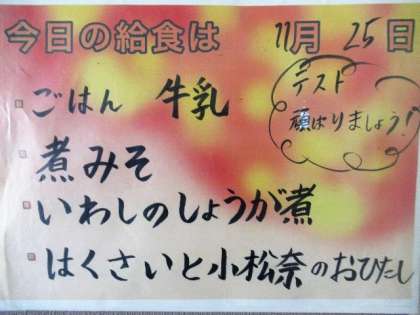 今日の給食は 11月 25日
テスト
頑はりましょう!
ごはん 牛乳
煮みそ
いわしのしょうが煮
はくさいと小松奈のおひたし